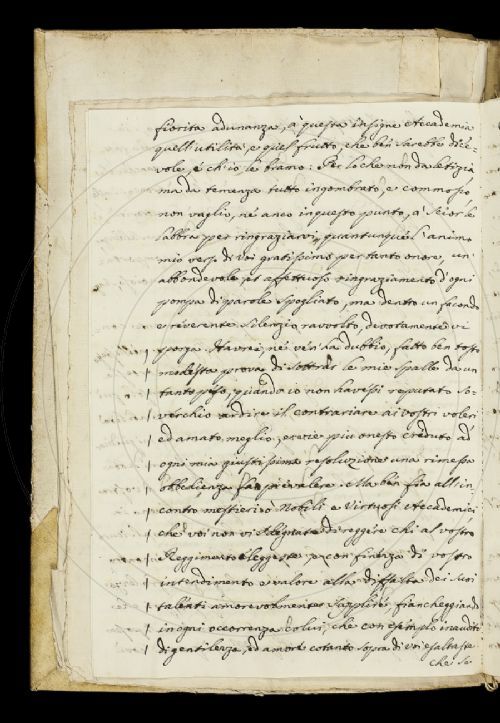 fiorita adunanza, à questa insigne Accademia
quell'utilità, e quel frutto, che ben sarebbe dice=
vole, e ch'io le bramo: Per lo che non da letizia
ma da temenza tutto ingombrato, e commosso
non vaglio, nè anco in questo punto, à scior le
labbra per ringraziarvi, quantunque l'animo
mio verso di Voi gratissimo per tanto onore, un
abbondevole, et affettuoso ringraziamento d'ogni
pompa di parole spogliato, ma dentro un facondo
e riverente silenzio ravvolto, devotamente vi
porga. Havrei, nè v'è da dubbio, fatto ben tosto
modesta prova di sottrar le mie spalle da un
tanto peso, quando io non havessi reputato so=
verchio ardire il contrariare ai vostri voleri
ed amato meglio, e più onesto creduto ad
ogni mia giustissima resoluzione una rimessa
obbedienza far prevalere. Ma ben fia all'in
contro mestieri ò Nobili e Virtuosi Accademici
che voi non vi sdegnate di reggere chi al vostro
Reggimento eleggeste, e con fidanza di vostro
intendimento e valore alla diffalta dei suoi
talenti amorevolmente supplire, fiancheggiando
in ogni occorrenza colui, che con esempio inaudito
di gentilezza, ed amore cotanto sopra di Voi esaltaste
che se